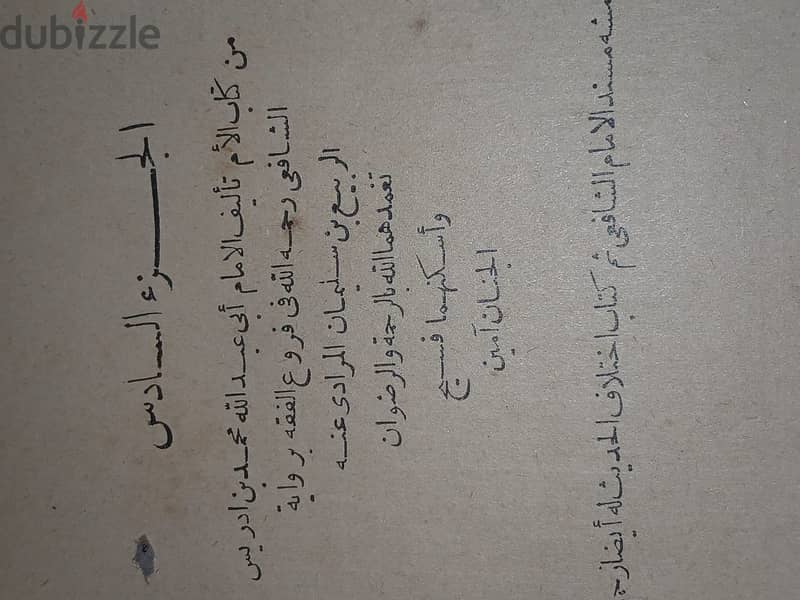 dubizzle
الجزء السادس
من كتاب الأم تأليف الامام أبى عبد الله محمد بن ادريس
الشافعى رحمه الله فى فروع الفقه برواية
الربيع بن سليمان المرادى عنه
تغمدهما الله بالرحمة والرضوان
وأسكنهما فسيح
الجنان آمين
مسند الامام الشافعى ثم كتاب اختلاف الحديث له أيضا